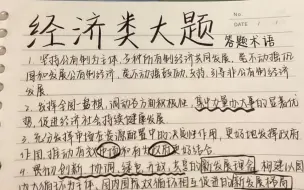 经济类大题
NO.
DATE
答题术语
1. 坚持公有制为主体、多种所有制经济共同发展,毫不动摇巩
固和发展公有制经济,毫不动摇鼓励、支持、引导非公有制经济
发展
2. 发挥全国一盘棋,调动各方面积极性,集中力量办大事的显著优
势,促进经济社会持续健康发展
3. 充分发挥市场在资源配置中的决定性作用,更好地发挥政府
作用,推动有效市场和有为政府更好结合
4. 贯彻创新、协调、绿色、开放、共享的新发展理念,构建以国
内大循环为主体、国内国际双循环相互促进的新发展格局